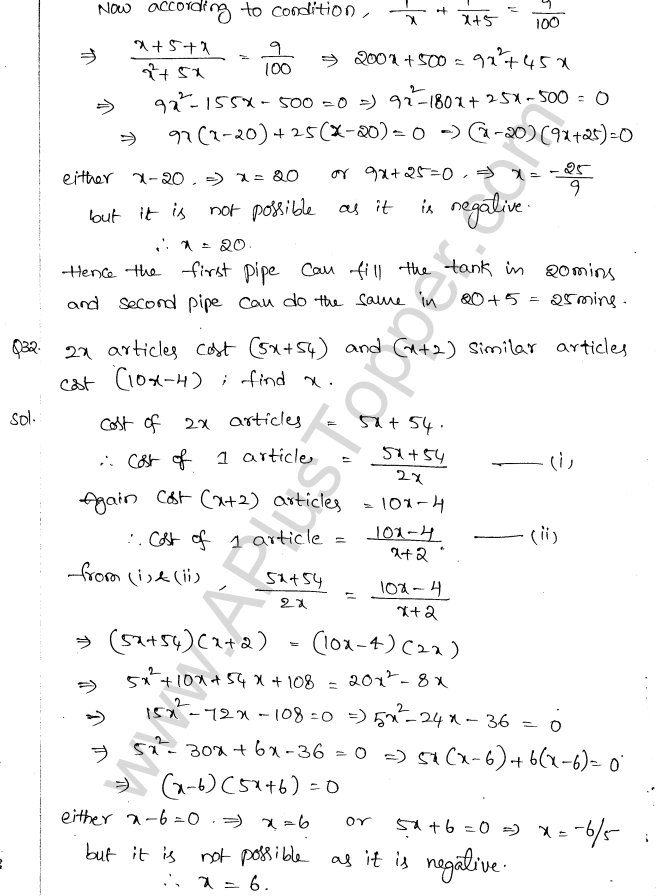 Now according to condition, 1/x + 1/x+5 = 9/100
⇒ x+5+x/x²+5x = 9/100 ⇒ 200x+500 = 9x²+45x
⇒ 9x²-155x-500=0 ⇒ 9x²-180x+25x-500=0
⇒ 9x(x-20)+25(x-20)=0 ⇒ (x-20)(9x+25)=0
either x-20, ⇒ x=20 or 9x+25=0, ⇒ x= -25/9
but it is not possible as it is negative.
∴ x = 20.
Hence the first pipe can fill the tank in 20mins
and second pipe can do the same in 20+5 = 25mins.
Q32. 2x articles cost (5x+54) and (x+2) similar articles
cost (10x-4) ; find x.
Sol. Cost of 2x articles = 5x+54.
∴ Cost of 1 article = 5x+54/2x —— (i)
Again Cost (x+2) articles = 10x-4
∴ Cost of 1 article = 10x-4/x+2 —— (ii)
from (i) & (ii), 5x+54/2x = 10x-4/x+2
⇒ (5x+54)(x+2) = (10x-4)(2x)
⇒ 5x²+10x+54x+108 = 20x²-8x
⇒ 15x²-72x-108=0 ⇒ 5x²-24x-36=0
⇒ 5x²-30x+6x-36=0 ⇒ 5x(x-6)+6(x-6)=0
⇒ (x-6)(5x+6)=0
either x-6=0 ⇒ x=6 or 5x+6=0 ⇒ x=-6/5
but it is not possible as it is negative.
∴ x = 6.
www.APlusTopper.com